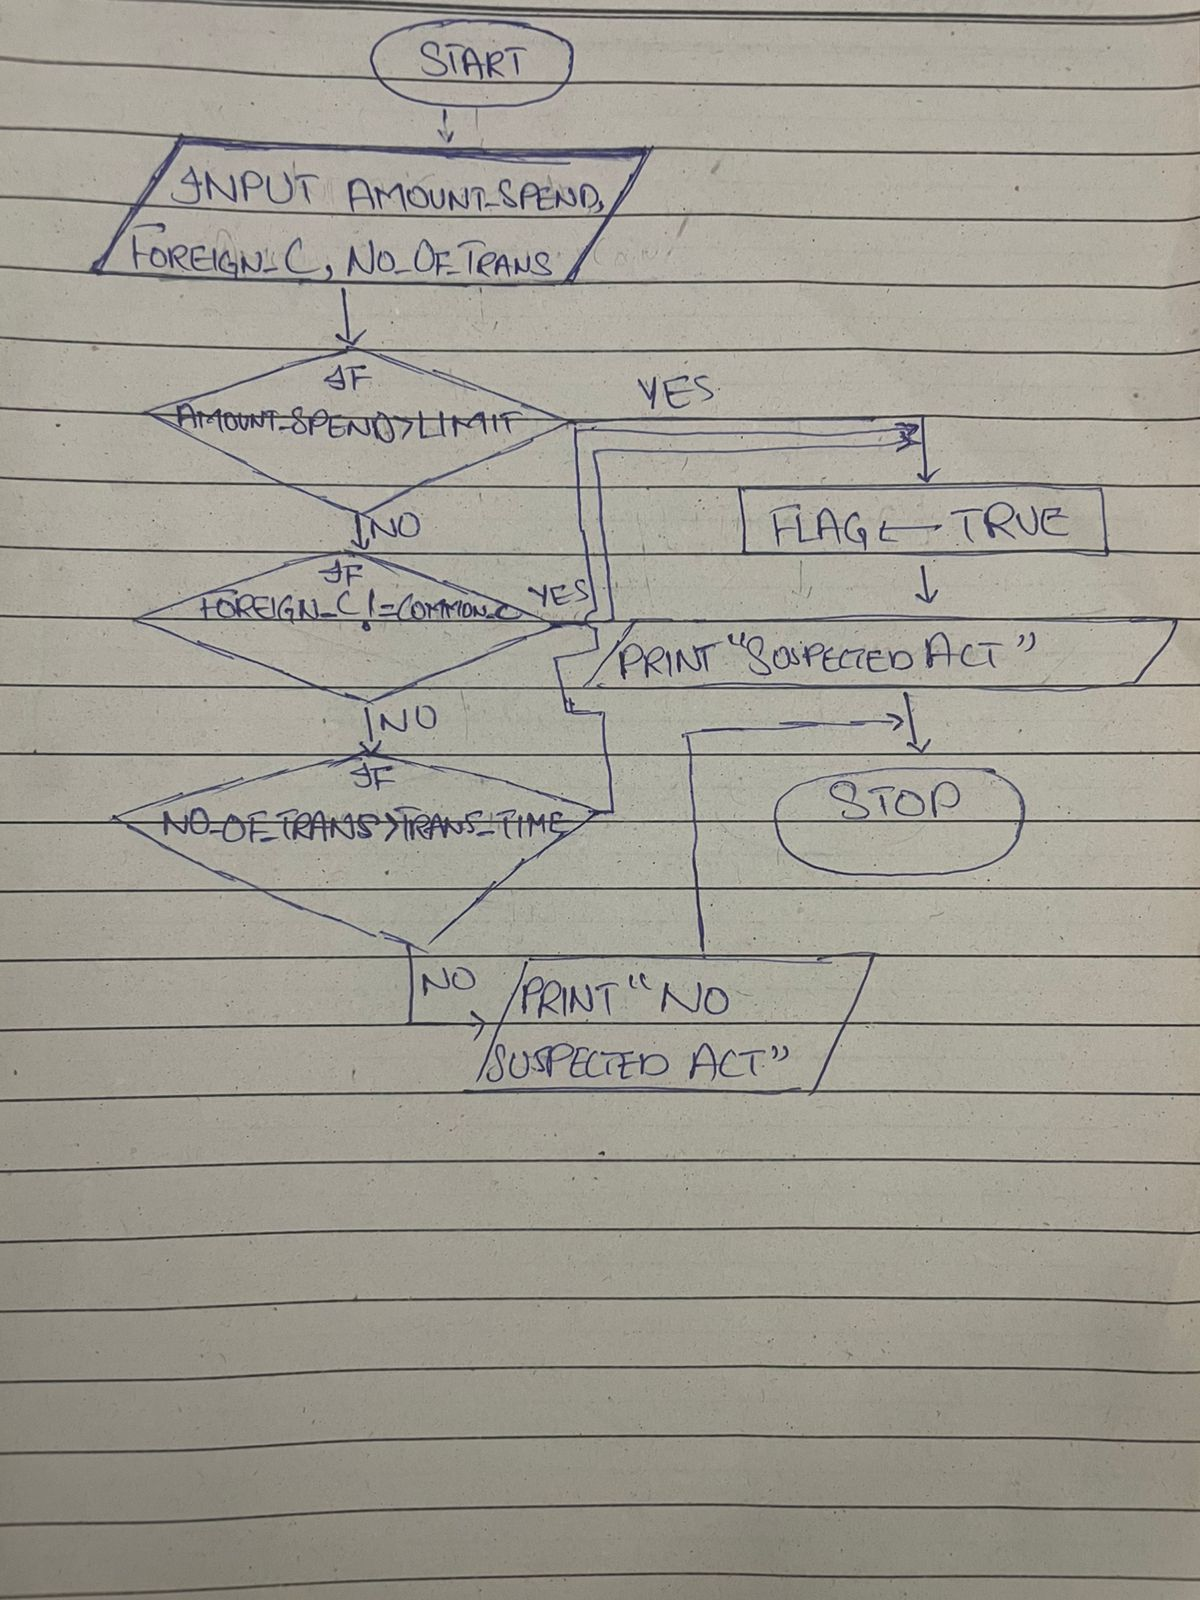 START
INPUT AMOUNT_SPEND,
FOREIGN_C, NO_OF_TRANS
IF
AMOUNT_SPEND>LIMIT
YES
NO
FLAG ← TRUE
IF
FOREIGN_C!=COMMON_C
YES
PRINT "SUSPECTED ACT"
NO
IF
NO_OF_TRANS>TRANS_TIME
STOP
NO
PRINT "NO
SUSPECTED ACT"